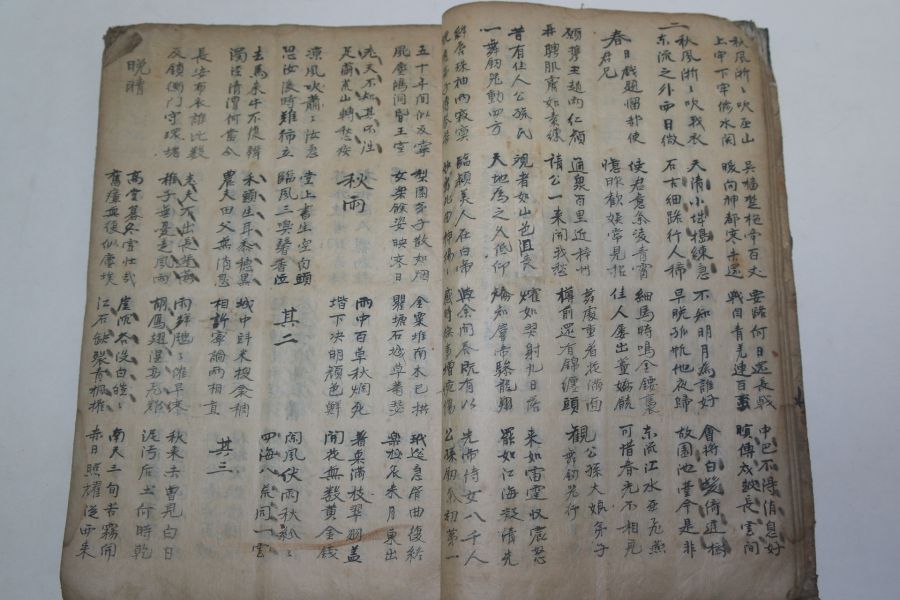 秋風淅〻吹巫山
上牢下牢修水關
吳檣楚柁牽百丈
暖向神都寒未還
要路何日還長戟
戰自青羌連百蠻
中巴不得消息好
暝傳戍鼓長雲間
二
秋風淅〻吹我衣
東流之外西日微
天清小城搗練急
石古細路行人稀
不知明月為誰好
早晚孤帆他夜歸
會將白髮倚庭樹
故園池臺今是非
春日戲題惱郝使
君兄
使君意氣凌青霄
憶昨歡娛常見招
細馬時鳴金騕褭
佳人屢出董嬌饒
東流江水西飛燕
可惜春光不相見
願攜王趙兩紅顏
再騁肌膚如素練
通泉百里近梓州
請公一來開我愁
舞處重看花滿面
樽前還有錦纏頭
觀公孫大娘弟子
舞劍器行
昔有佳人公孫氏
一舞劍器動四方
觀者如山色沮喪
天地為之久低仰
㸌如羿射九日落
矯如羣帝驂龍翔
來如雷霆收震怒
罷如江海凝清光
絳唇珠袖兩寂寞
晚有弟子傳芬芳
臨潁美人在白帝
妙舞此曲神揚〻
與余問答既有以
感時撫事增惋傷
先帝侍女八千人
公孫劍器初第一
五十年間似反掌
風塵澒洞昏王室
梨園弟子散如烟
女樂餘姿映寒日
金粟堆南木已拱
瞿塘石城草蕭瑟
玳筵急管曲復終
樂極哀來月東出
老夫不知其所往
足繭荒山轉愁疾
秋雨
雨中百草秋爛死
堦下决明顏色鮮
著葉滿枝翠羽蓋
開花無數黃金錢
凉風吹蕭〻汝急
恐汝後時難獨立
堂上書生空白頭
臨風三嗅馨香泣
其二
闌風伏雨秋紛〻
四海八荒同一雲
去馬來牛不復辨
濁涇清渭何當分
禾頭生耳黍穗黑
農夫田父無消息
城中斗米換衾裯
相許寧論兩相直
其三
長安布衣誰比數
反鎖衡門守環堵
老夫不出長蓬蒿
稚子無憂走風雨
雨聲颼〻催早寒
胡鴈翅濕高飛難
秋來未曾見白日
泥污后土何時乾
晚晴
高堂暮冬雪壯哉
舊瘴無復似塵埃
崖沉谷沒白皚〻
江石缺裂青楓摧
南天三旬苦霧開
赤日照耀從西來